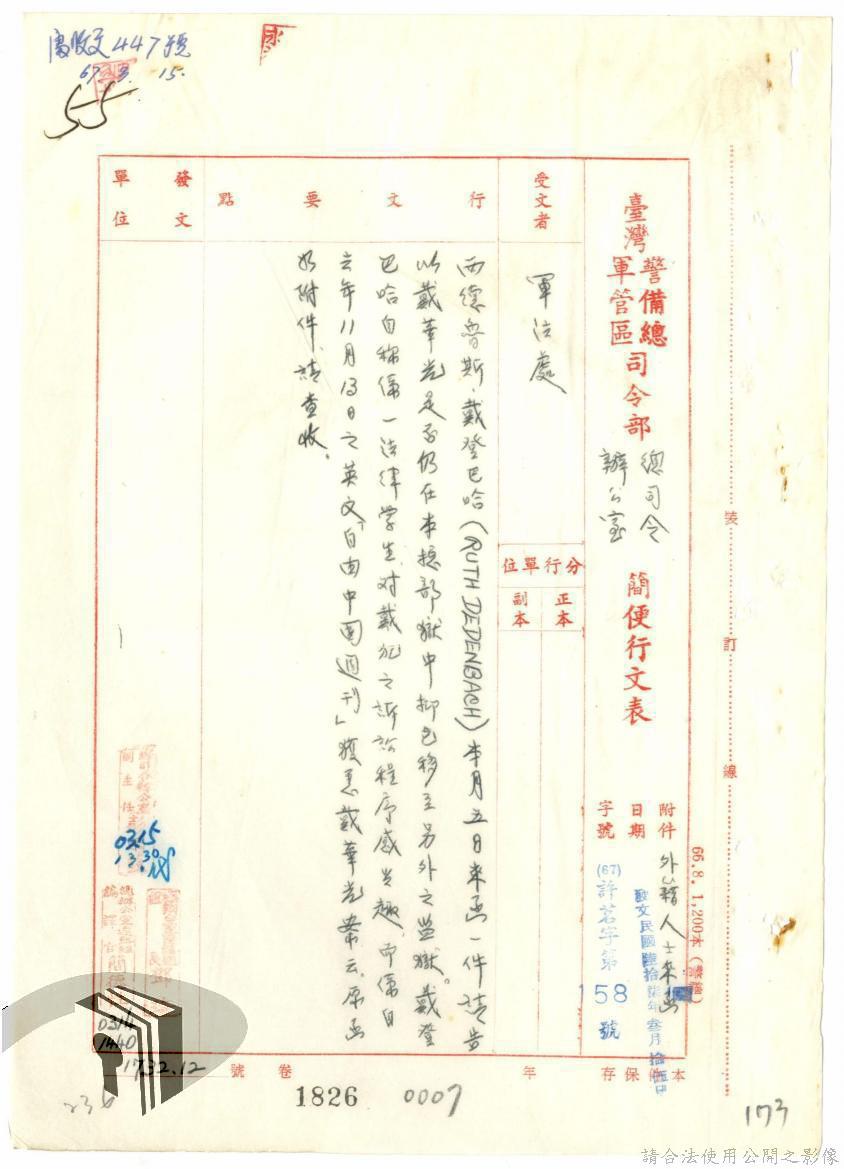 處收文447號
67. 3. 15.
55
臺灣警備總司令部
軍管區
總司令辦公室
簡便行文表
附件 外籍人士來函
日期 發文民國陸拾柒年叁月拾伍日
字號 (67)許茗字第158號
受文者
軍法處
分行單位
正本
副本
行文要點
西德魯斯.戴登巴哈(RUTH DEDENBACH)本月五日來函一件請告
以戴華光是否仍在本總部獄中抑已移至另外之監獄。戴登
巴哈自稱係一法律學生,對戴犯之訴訟程序感興趣,而係自
去年11月13日之英文「自由中國週刊」獲悉戴華光案云,原函
如附件,請查收。
發文單位
副主任
0315
1330
0314
1440
1732.12
本件保存 年
卷號
1826
0007
236
173
66.8. 1,200本
裝訂線
請合法使用公開之影像